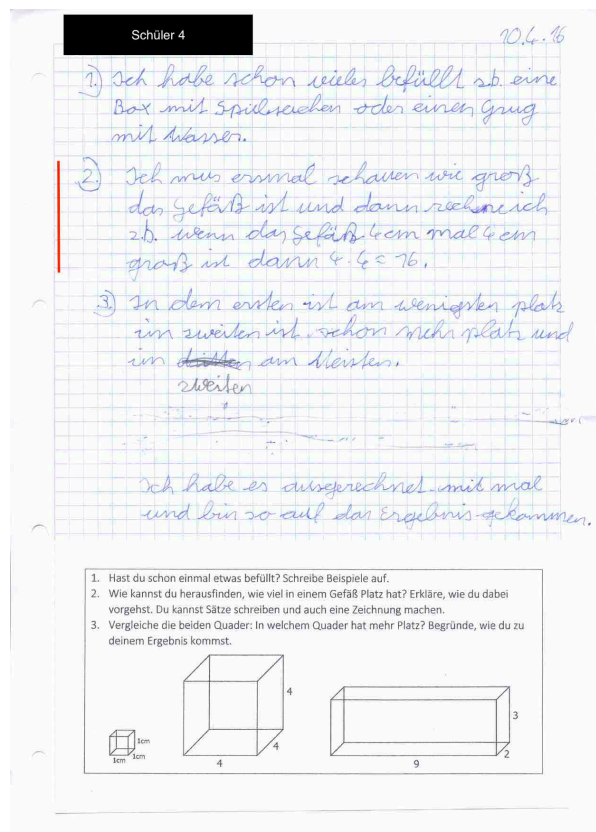 Schüler 4
10.4.16
1.) Ich habe schon vieles befüllt zb. eine
Box mit Spielseichen oder einen Grug
mit Wasser.
2.) Ich mus ersmal schauen wie groß
das Gefäß ist und dann rechne ich
z.b. wenn das Gefäß 4cm mal 4cm
groß ist dann 4·4=16.
3.) In dem ersten ist am wenigsten platz
im zweiten ist schon mehr platz und
im dritten am Meisten.
zweiten
Ich habe es ausgerechnet mit mal
und bin so auf das Ergebnis gekommen.
1. Hast du schon einmal etwas befüllt? Schreibe Beispiele auf.
2. Wie kannst du herausfinden, wie viel in einem Gefäß Platz hat? Erkläre, wie du dabei
vorgehst. Du kannst Sätze schreiben und auch eine Zeichnung machen.
3. Vergleiche die beiden Quader: In welchem Quader hat mehr Platz? Begründe, wie du zu
deinem Ergebnis kommst.
1cm
1cm
1cm
4
4
4
3
2
9